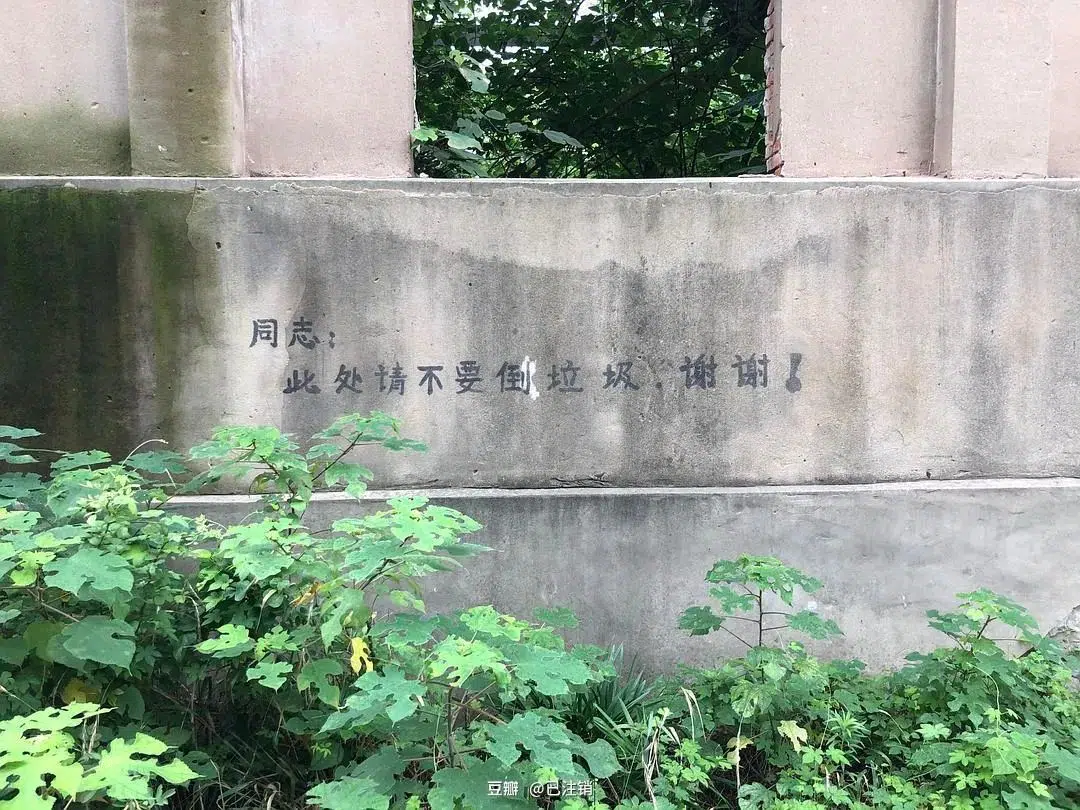 同志：
此处请不要倒垃圾.谢谢！
豆瓣 @已注销